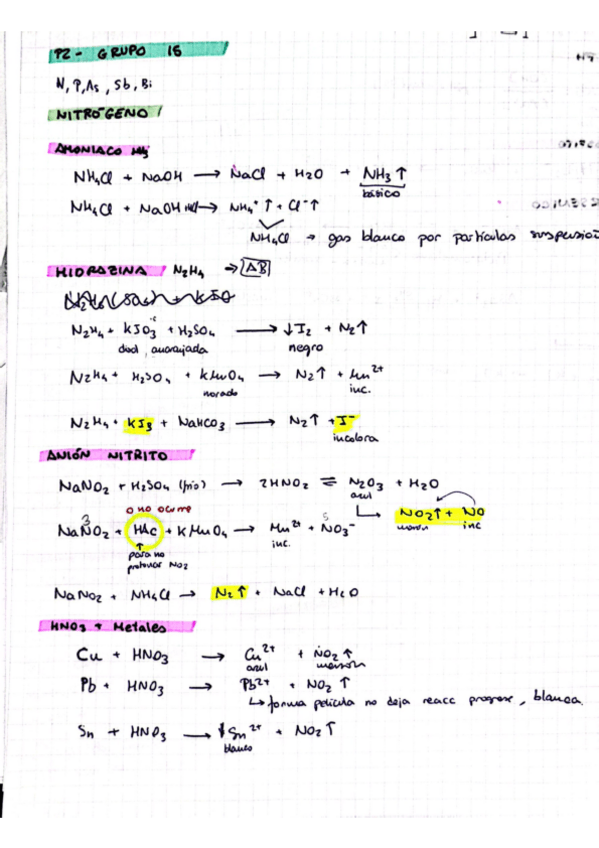 P2 - GRUPO 15
N, P, As, Sb, Bi
NITRÓGENO
AMONIACO NH3
NH4Cl + NaOH → NaCl + H2O + NH3 ↑
básico
NH4Cl + NaOH → NH4+ ↑ + Cl- ↑
NH4Cl → gas blanco por partículas suspensió
HIDRAZINA N2H4 → AB
N2H4 + KIO3 + H2SO4 → ↓I2 + N2↑
negro
N2H4 + H2SO4 + KMnO4 → N2↑ + Mn2+
morado inc.
N2H4 + KI3 + NaHCO3 → N2↑ + I-
incolora
ANIÓN NITRITO
NaNO2 + H2SO4 (frío) → 2HNO2 ⇌ N2O3 + H2O
azul
o no ocurre
NO2↑ + NO
marrón inc
3 5
NaNO2 + HAc + KMnO4 → Mn2+ + NO3-
inc.
↑
para no
protonar NO2
NaNO2 + NH4Cl → N2↑ + NaCl + H2O
HNO3 + Metales
Cu + HNO3 → Cu2+ + NO2 ↑
azul marrón
Pb + HNO3 → Pb2+ + NO2 ↑
↳ forma película no deja reacc progrese, blanca.
Sn + HNO3 → ↓Sn2+ + NO2↑
blanco